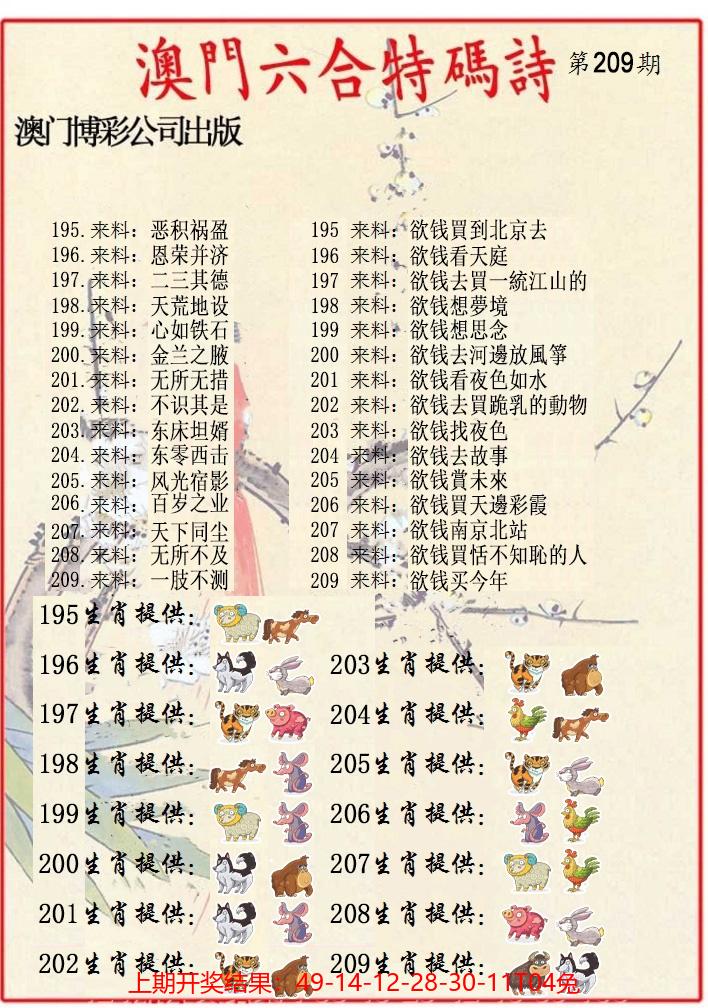 澳門六合特碼詩 第209期
澳门博彩公司出版
195.来料：恶积祸盈
196.来料：恩荣并济
197.来料：二三其德
198.来料：天荒地设
199.来料：心如铁石
200.来料：金兰之腋
201.来料：无所无措
202.来料：不识其是
203.来料：东床坦婿
204.来料：东零西击
205.来料：风光宿影
206.来料：百岁之业
207.来料：天下同尘
208.来料：无所不及
209.来料：一肢不测
195 来料：欲钱買到北京去
196 来料：欲钱看天庭
197 来料：欲钱去買一統江山的
198 来料：欲钱想夢境
199 来料：欲钱想思念
200 来料：欲钱去河邊放風箏
201 来料：欲钱看夜色如水
202 来料：欲钱去買跪乳的動物
203 来料：欲钱找夜色
204 来料：欲钱去故事
205 来料：欲钱賞未來
206 来料：欲钱買天邊彩霞
207 来料：欲钱南京北站
208 来料：欲钱買恬不知恥的人
209 来料：欲钱买今年
195生肖提供：
196生肖提供：
197生肖提供：
198生肖提供：
199生肖提供：
200生肖提供：
201生肖提供：
202生肖提供：
203生肖提供：
204生肖提供：
205生肖提供：
206生肖提供：
207生肖提供：
208生肖提供：
209生肖提供：
上期开奖结果：49-14-12-28-30-11T04兔